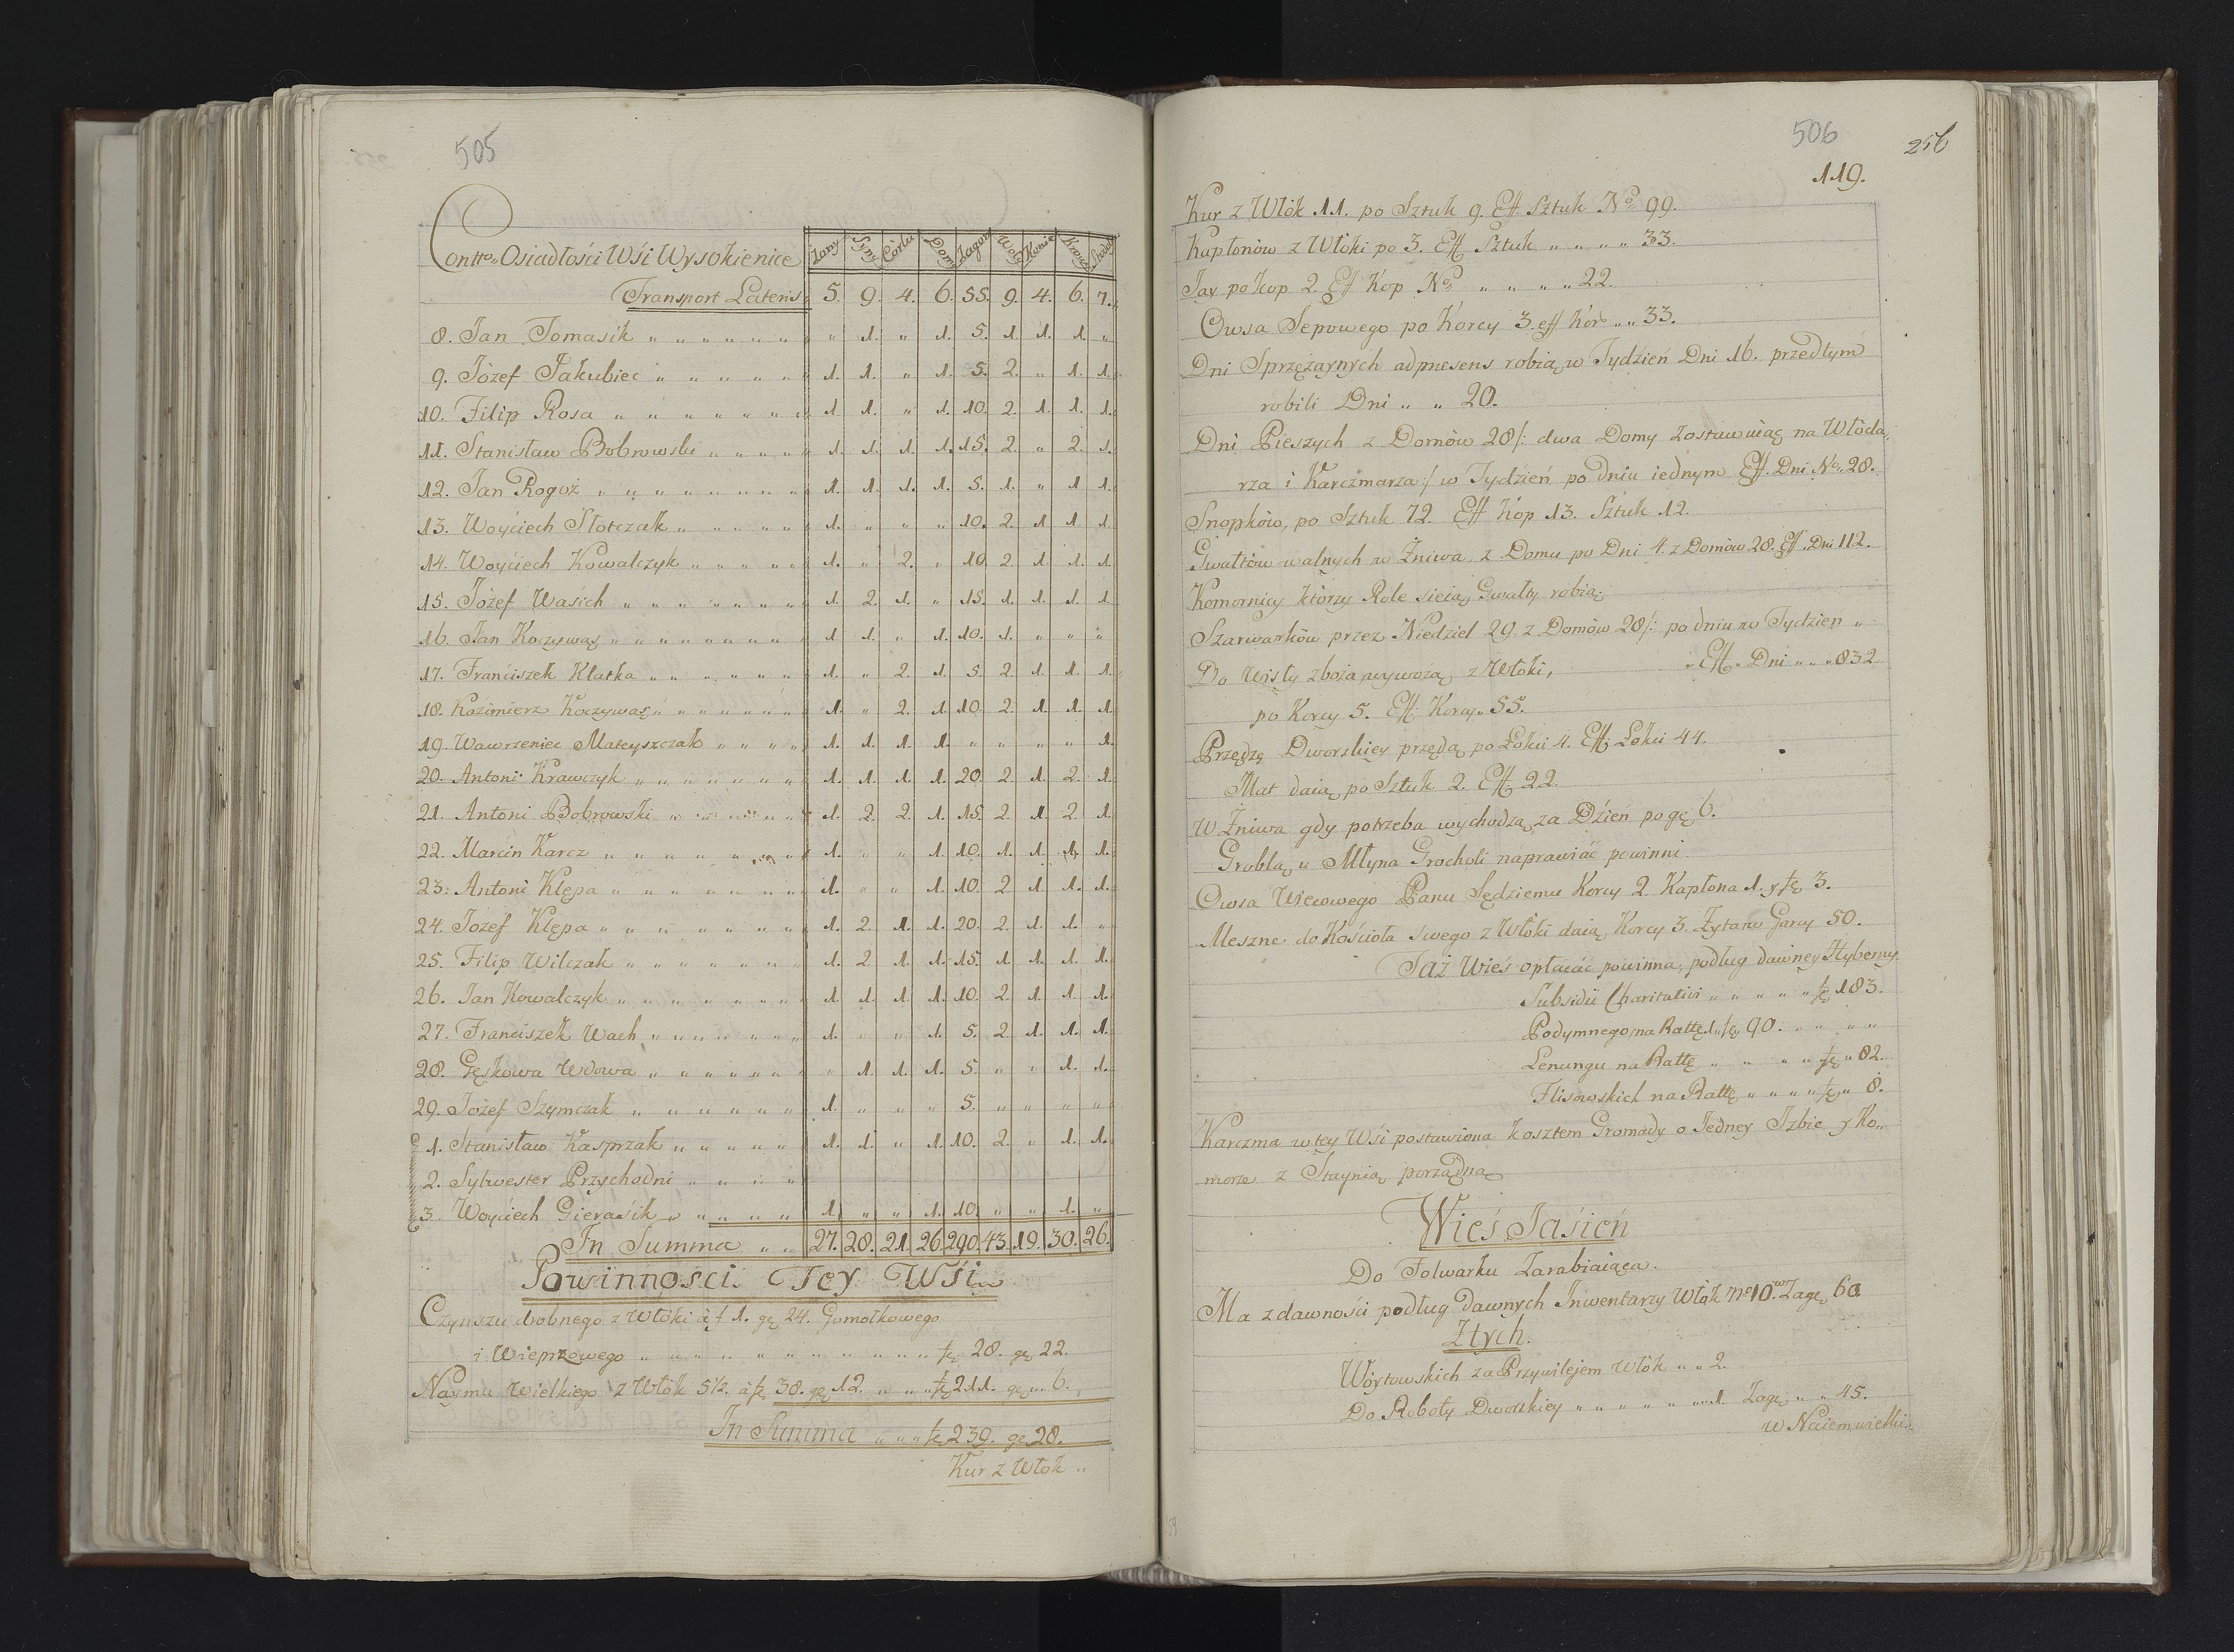 505
Contto. Osiadłości Wśi Wysokienice Żony Syn Córki Dom Zagony Woły Konie Krowy
Transport Lateris 5. 9. 4. 6. 55. 9. 4. 6. 7.
8. Jan Tomasik " " " " " " " " 1. " 1. 5. 1. 1. 1. "
9. Józef Jakubiec " " " " " " 1. 1. " 1. 5. 2. " 1. 1.
10. Filip Rosa " " " " " " " 1. 1. " 1. 10. 2. 1. 1. 1.
11. Stanisław Bobrowski " " " " " 1. 1. 1. 1. 15. 2. " 2. 1.
12. Jan Rogoż " " " " " " " " 1. 1. 1. 1. 5. 1. " 1. 1.
13. Woyciech Słotczak " " " " " 1. " " " 10. 2. 1. 1. 1.
14. Woyciech Kowalczyk " " " " " 1. " 2. " 10. 2. 1. 1. 1.
15. Józef Wasich " " " " " " " 1. 2. 1. " 15. 1. 1. 1. 1.
16. Jan Koczywąs " " " " " " " 1. 1. " 1. 10. 1. " " "
17. Franciszek Klatka " " " " " " 1. " 2. 1. 5. 2. 1. 1. 1.
18. Kazimierz Koczywąs " " " " " " 1. " 2. 1. 10. 2. 1. 1. 1.
19. Wawrzeniec Mateyszczak " " " " 1. 1. 1. 1. " " " " 1.
20. Antoni Krawczyk " " " " " " " 1. 1. 1. 1. 20. 2. 1. 2. 1.
21. Antoni Bobrowski " " " " " " 1. 2. 2. 1. 15. 2. 1. 2. 1.
22. Marcin Karcz " " " " " " " 1. " " 1. 10. 1. 1. 1. 1.
23. Antoni Klępa " " " " " " " 1. " " 1. 10. 2. 1. 1. 1.
24. Jozef Klępa " " " " " " " 1. 2. 1. 1. 20. 2. 1. 1. "
25. Filip Wilczak " " " " " " " 1. 2. 1. 1. 15. 1. 1. 1. 1.
26. Jan Kowalczyk " " " " " " " 1. 1. 1. 1. 10. 2. 1. 1. 1.
27. Franciszek Wach " " " " " " " 1. " " 1. 5. 2. 1. 1. 1.
28. Gęskowa Wdowa " " " " " " " 1. 1. 1. 5. " " 1. 1.
29. Jozef Szymczak " " " " " " 1. " " " 5. " " " "
1. Stanisław Kasprzak " " " " " 1. 1. " 1. 10. 2. " 1. 1.
2. Sylwester Przychodni " " " "
3. Woyciech Gieraśik " " " " " 1. " " 1. 10. " " 1. "
In Summa " " 27. 28. 21. 26. 290. 43. 19. 30. 26.
Powinności Tey Wśi
Czynszu drobnego z Włóki à f 1. gę 24. Gomołkowego
i Wieprzowego " " " " " " " " " " " fę 20. gę 22.
Naymu Wielkiego z Włók 5 1/2. à fę 38. gę 12. " " " fę 211. gę " 6.
In Summa " " " fę 239. gę 28.
Kur z Włok "
506
256
119.
Kur z Włók 11. po Sztuk 9. Eff Sztuk No. 99.
Kapłonów z Włoki po 3. Eff Sztuk " " " " 33.
Jay po kop 2. Eff Kop No. " " " " 22.
Owsa Sepowego po Korcy 3. eff Kor " " 33.
Dni Sprzężaynych adpraesens robią w Tydzień Dni 16. przedtym
robili Dni " " 20.
Dni Pieszych z Domów 28/: dwa Domy zostawuiąc na Włóda,
rza i Karczmarza:/ w Tydzień po dniu iednym Eff. Dni No. 28.
Snopków, po Sztuk 72. Eff Kop 13. Sztuk 12.
Gwałtów walnych w Żniwa, z Domu po Dni 4. z Domów 28. Eff. Dni 112.
Komornicy którzy Role sieią Gwałty robią
Szarwarków przez Niedziel 29. z Domów 28/: po dniu w Tydzień "
" Eff. Dni " " " 832.
Do Wisły zboża wywożą z Włoki,
po Korcy 5. Eff. Korcy " 55.
Przędzę Dworskiey przędą po Łokci 4. Eff. Łokci 44.
Mat daią po Sztuk 2. Eff. 22.
W Żniwa gdy potrzeba wychodzą za Dzień po gę 6.
Groblą u Młyna Grocholi naprawiać powinni
Owsa Wiecowego Panu Sędziemu Korcy 2. Kapłona 1. y fę 3.
Meszne do Kościoła swego z Włóki daią Korcy 3. Żytare Garcy 50.
Taż Wieś opłacać powinna, podług dawney Hyberny
Subsidii Charitativi " " " " " fę 183.
Podymnego na Rattę 1. fę 90. " " " "
Lenungu na Rattę " " " " fę " 82.
Flisowskich na Rattę " " " " fę " 8.
Karczma w tey Wśi postawiona kosztem Gromady o Jedney Izbie y Ko„
morze z Staynią porządną
Wieś Jasień
Do Folwarku Zarabiaiąca.
Ma z dawności podług Dawnych Inwentarzy Włók No. 10. Zagę 60
Z tych.
Wóytowskich za Przywilejem Włók " " 2.
Do Roboty Dworskiey " " " " " " 1. Zagę " " 45.
w Naiem wielki